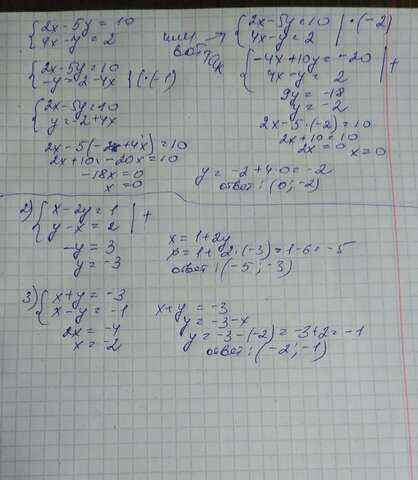 {2x-5y=10
{4x-y=2
{2x-5y=10
{-y=2-4x |(·(-1)
{2x-5y=10
{y=-2+4x
2x-5(-2+4x)=10
2x+10-20x=10
-18x=0
x=0
или
вот так
{2x-5y=10 |·(-2)
{4x-y=2
{-4x+10y=-20 |+
{4x-y=2
9y=-18
y=-2
2x-5·(-2)=10
2x+10=10
2x=0
x=0
y=-2+4·0=-2
ответ: (0;-2)
2) {x-2y=1 |+
{y-x=2
-y=3
y=-3
x=1+2y
x=1+2·(-3)=1-6=-5
ответ: (-5;-3)
3) {x+y=-3
{x-y=-1
2x=-4
x=-2
x+y=-3
y=-3-x
y=-3-(-2)=-3+2=-1
ответ: (-2;-1)